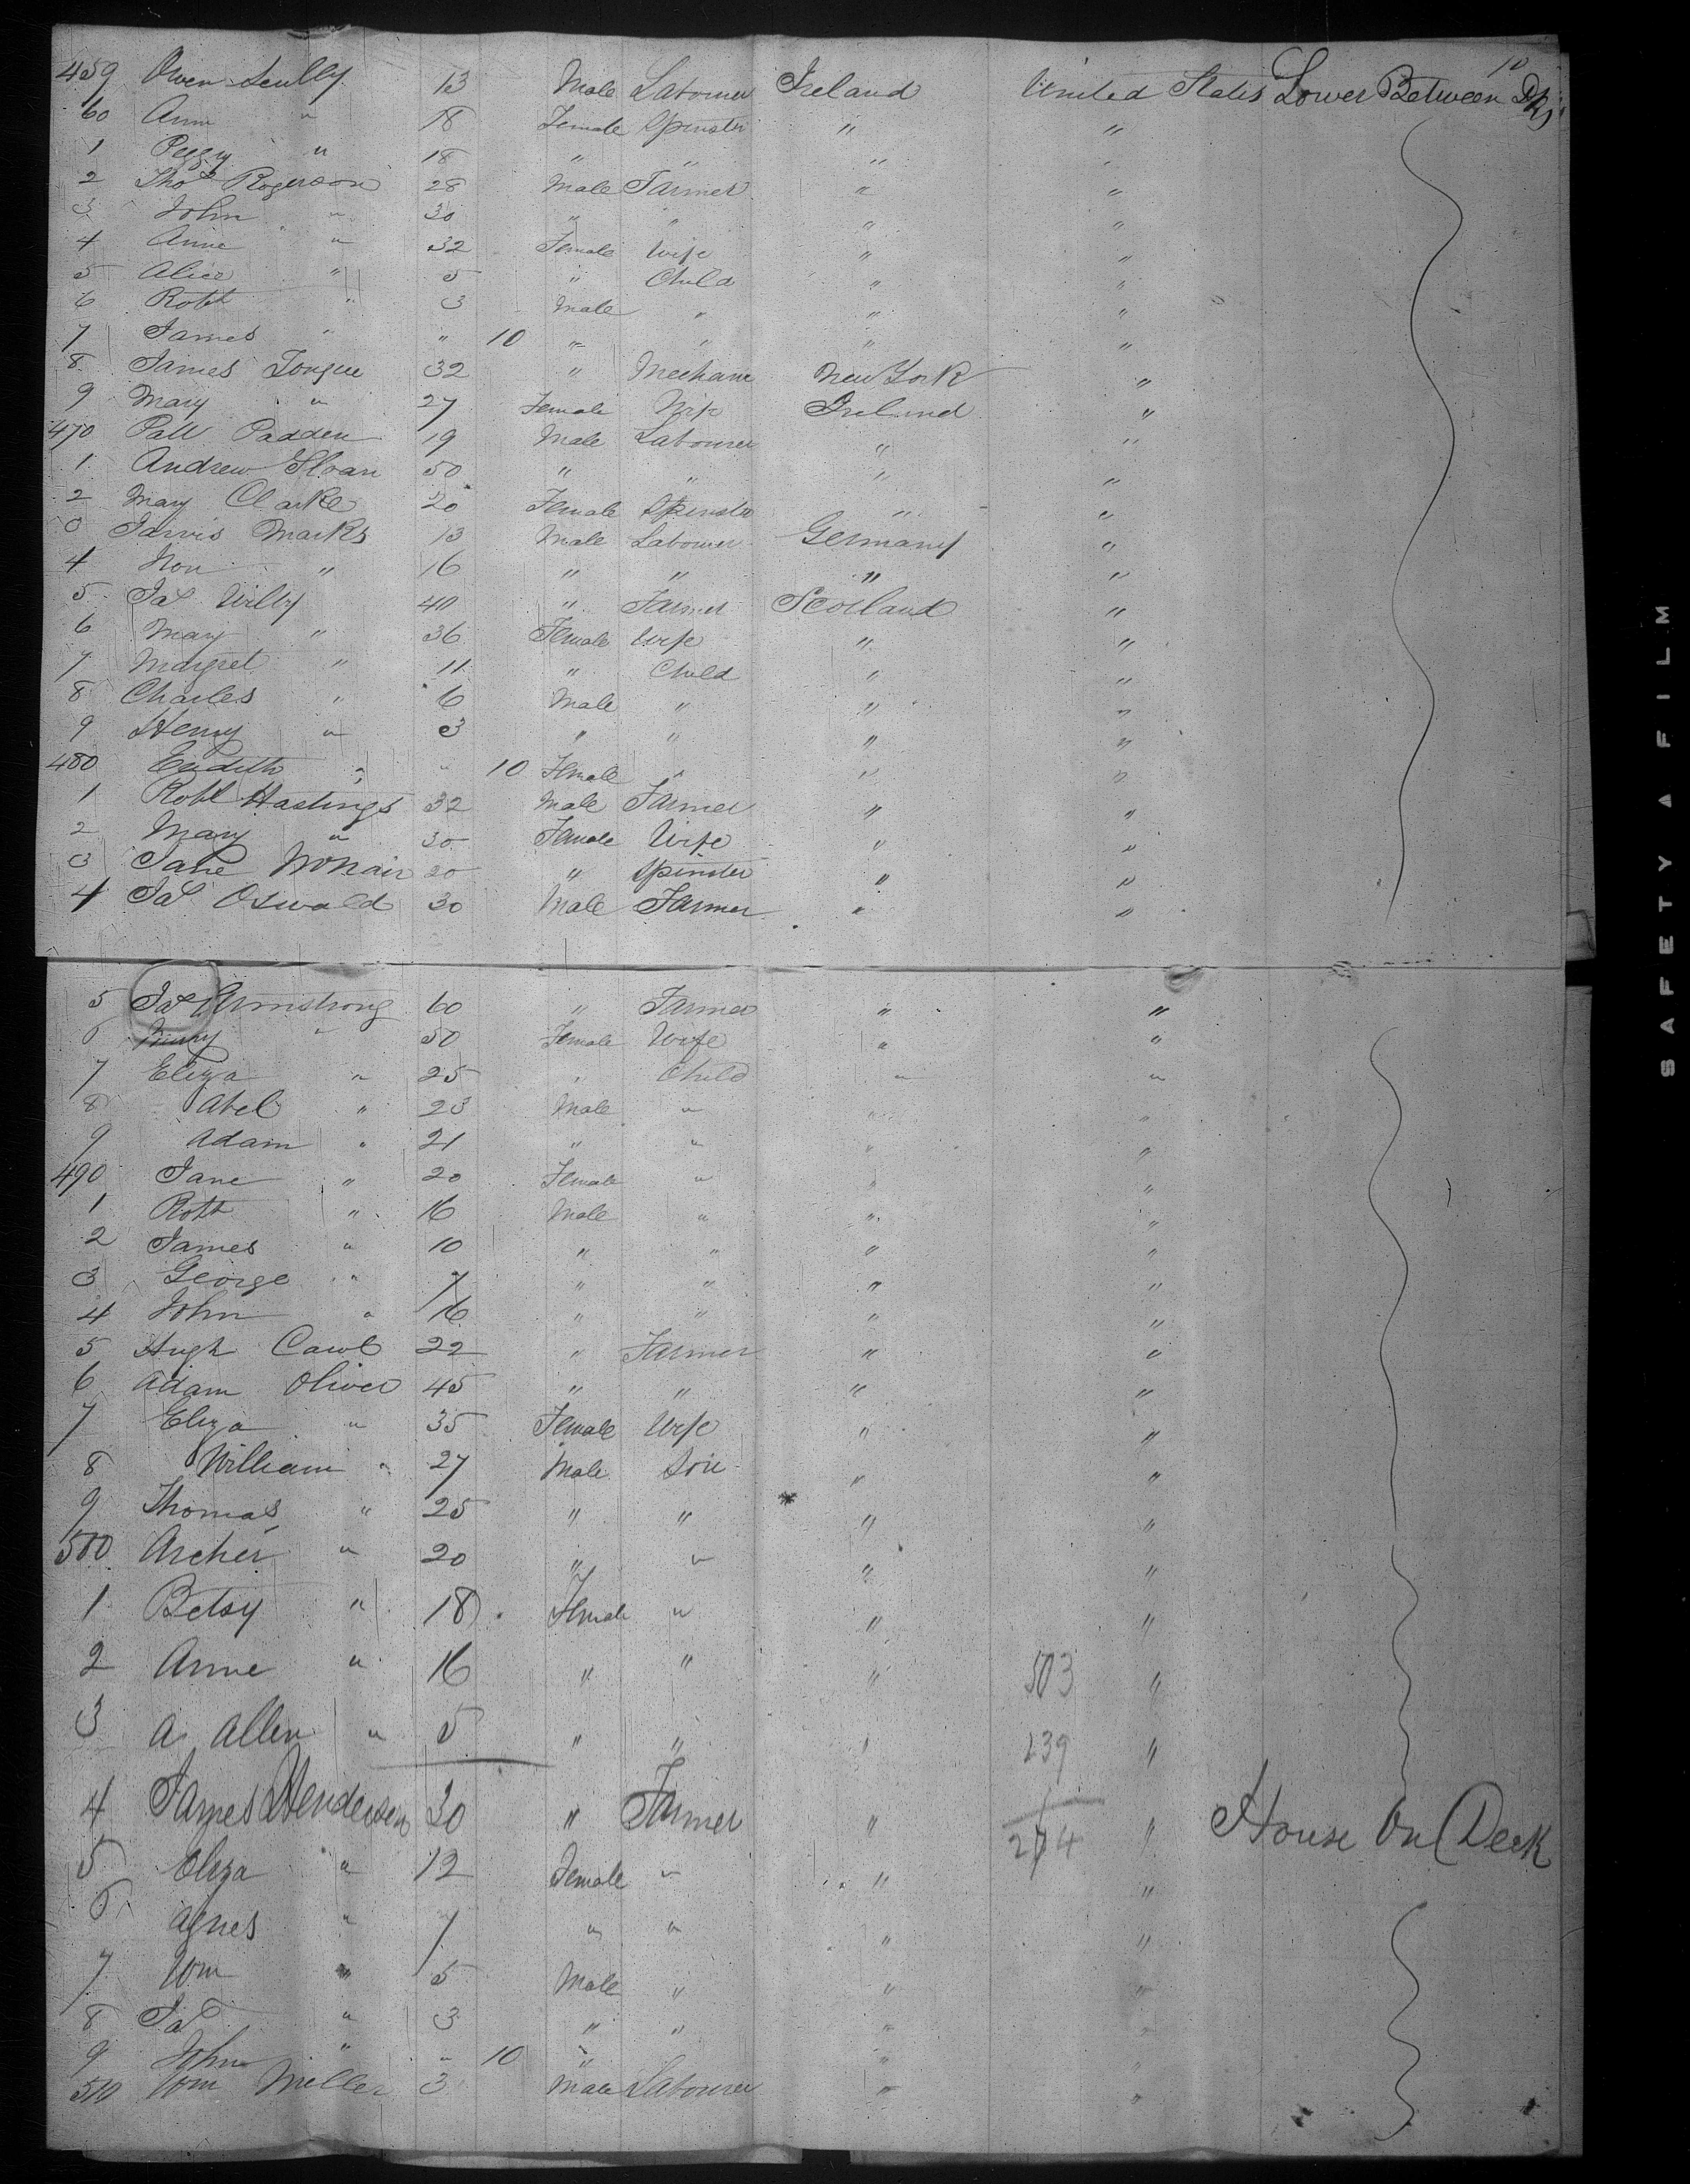 10
459 Owen Scully 13 Male Labourer Ireland United States Lower Between Dks
60 Ann " 18 Female Spinster " "
1 Peggy " 18 " " " "
2 Thos Rogerson 28 Male Farmer " "
3 John " 30 " " " "
4 Anne " 32 Female Wife " "
5 Alice " 5 " Child " "
6 Robt " 3 Male " " "
7 James " " 10 " " " "
8 James Tongue 32 " Mechanic New York "
9 Mary " 27 Female Wife Ireland "
470 Patt Padden 19 Male Labourer " "
1 Andrew Sloan 50 " " " "
2 Mary Clarke 20 Female Spinster " "
3 Jarvis Marks 13 Male Labourer Germany "
4 " 16 " " " "
5 Jas 40 " Farmer Scotland "
6 Mary " 36 Female Wife " "
7 Margret " 11 " Child " "
8 Charles " 6 Male " " "
9 Henry " 3 " " " "
480 " " 10 Female " " "
1 Robt Hastings 32 Male Farmer " "
2 Mary " 30 Female Wife " "
3 Jane McNair 20 " Spinster " "
4 Jas Oswald 30 Male Farmer " "
5 Jas Armstrong 60 " Farmer " "
6 " 50 Female Wife " "
7 Eliza " 25 " Child " "
8 Abel " 23 Male " " "
9 Adam " 21 " " " "
490 Jane " 20 Female " " "
1 Robt " 16 Male " " "
2 James " 10 " " " "
3 George " 7 " " " "
4 John " 16 " " " "
5 Hugh 22 " Farmer " "
6 Adam Oliver 45 " " " "
7 Eliza " 35 Female Wife " "
8 William " 27 Male Son " "
9 Thomas " 25 " " " "
500 Archer " 20 " " " "
1 Betsy " 18 Female " " "
2 Anne " 16 " " " 503 "
3 A. Allen " 5 " " " 239 "
4 James Henderson 30 " Farmer " 264 " House On Deck
5 Eliza " 12 Female " " "
6 Agnes " 7 " " " "
7 Wm " 5 Male " " "
8 Jas " 3 " " " "
9 John " " 10 " " "
510 Wm Miller 3 Male Labourer " "
SAFETY A FILM